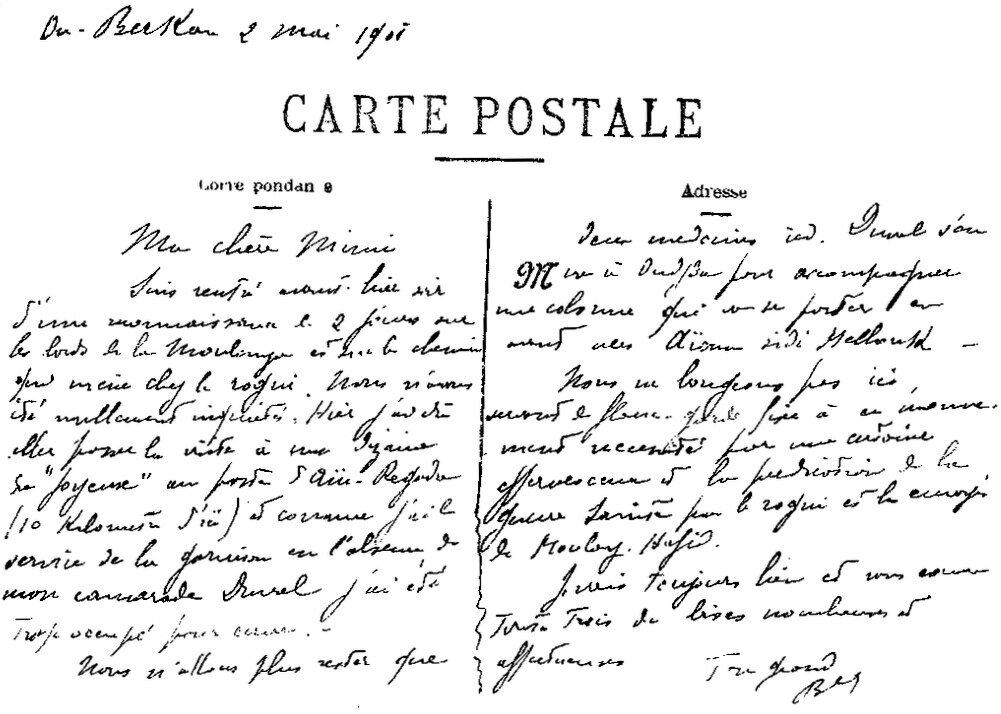 Berkan 2 mai
CARTE POSTALE
Corre pondan e
Ma chère Mimi
Suis rentré avant-hier soir
d'une reconnaissance de 2 jours sur
les bords de la Moulouya et sur le chemin
qui mène chez le rogui. Nous n'avons
été nullement inquiétés. Hier j'ai dû
aller passer la visite à une dizaine
de "Joyeux" au poste d'Aïn-Regada
(10 Kilomètres d'ici) et comme j'ai le
service de la garnison en l'absence de
mon camarade j'ai été
Trop occupé pour
Nous n'allons plus rester que
Adresse
deux médecins ici. s'en
M à Oudjda pour accompagner
une colonne qui va se porter en
avant vers Aïoun sidi Mellouk –
Nous ne bougeons pas ici
garde à ce mouve-
ment nécessité par une certaine
effervescence et la prédication de la
guerre sainte par le rogui et les envoyés
de Moulay-Hafid.
Je vais toujours bien et vous
Toutes Trois de bises nombreuses et
affectueuses
Ton grand